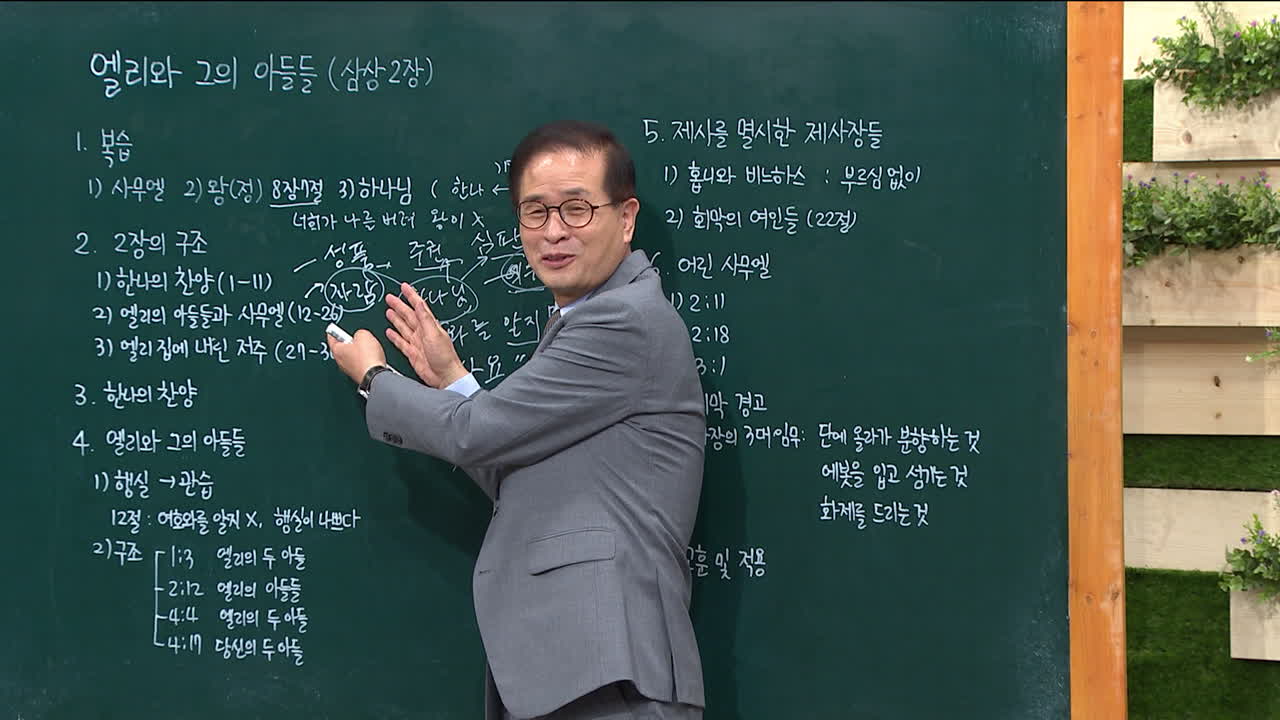 엘리와 그의 아들들 (삼상 2장)
1. 복습
1) 사무엘 2) 왕(정) 8장7절 3) 하나님 ( 한나 ←
너희가 나를 버려 왕이 X
2. 2장의 구조
성품 주권 심판
1) 한나의 찬양 (1-11)
자람
2) 엘리의 아들들과 사무엘 (12-26)
3) 엘리 집에 내린 저주 (27-3
3. 한나의 찬양
4. 엘리와 그의 아들들
1) 행실 → 관습
12절 : 여호와를 알지 X, 행실이 나쁘다
2) 구조
1:3 엘리의 두 아들
2:12 엘리의 아들들
4:4 엘리의 두 아들
4:17 당신의 두 아들
5. 제사를 멸시한 제사장들
1) 홉니와 비느하스 : 부르심 없이
2) 회막의 여인들 (22절)
어린 사무엘
1) 2:11
2:18
3:1
막 경고
장의 3대 임무: 단에 올라가 분향하는 것
에봇을 입고 섬기는 것
화제를 드리는 것
훈 및 적용